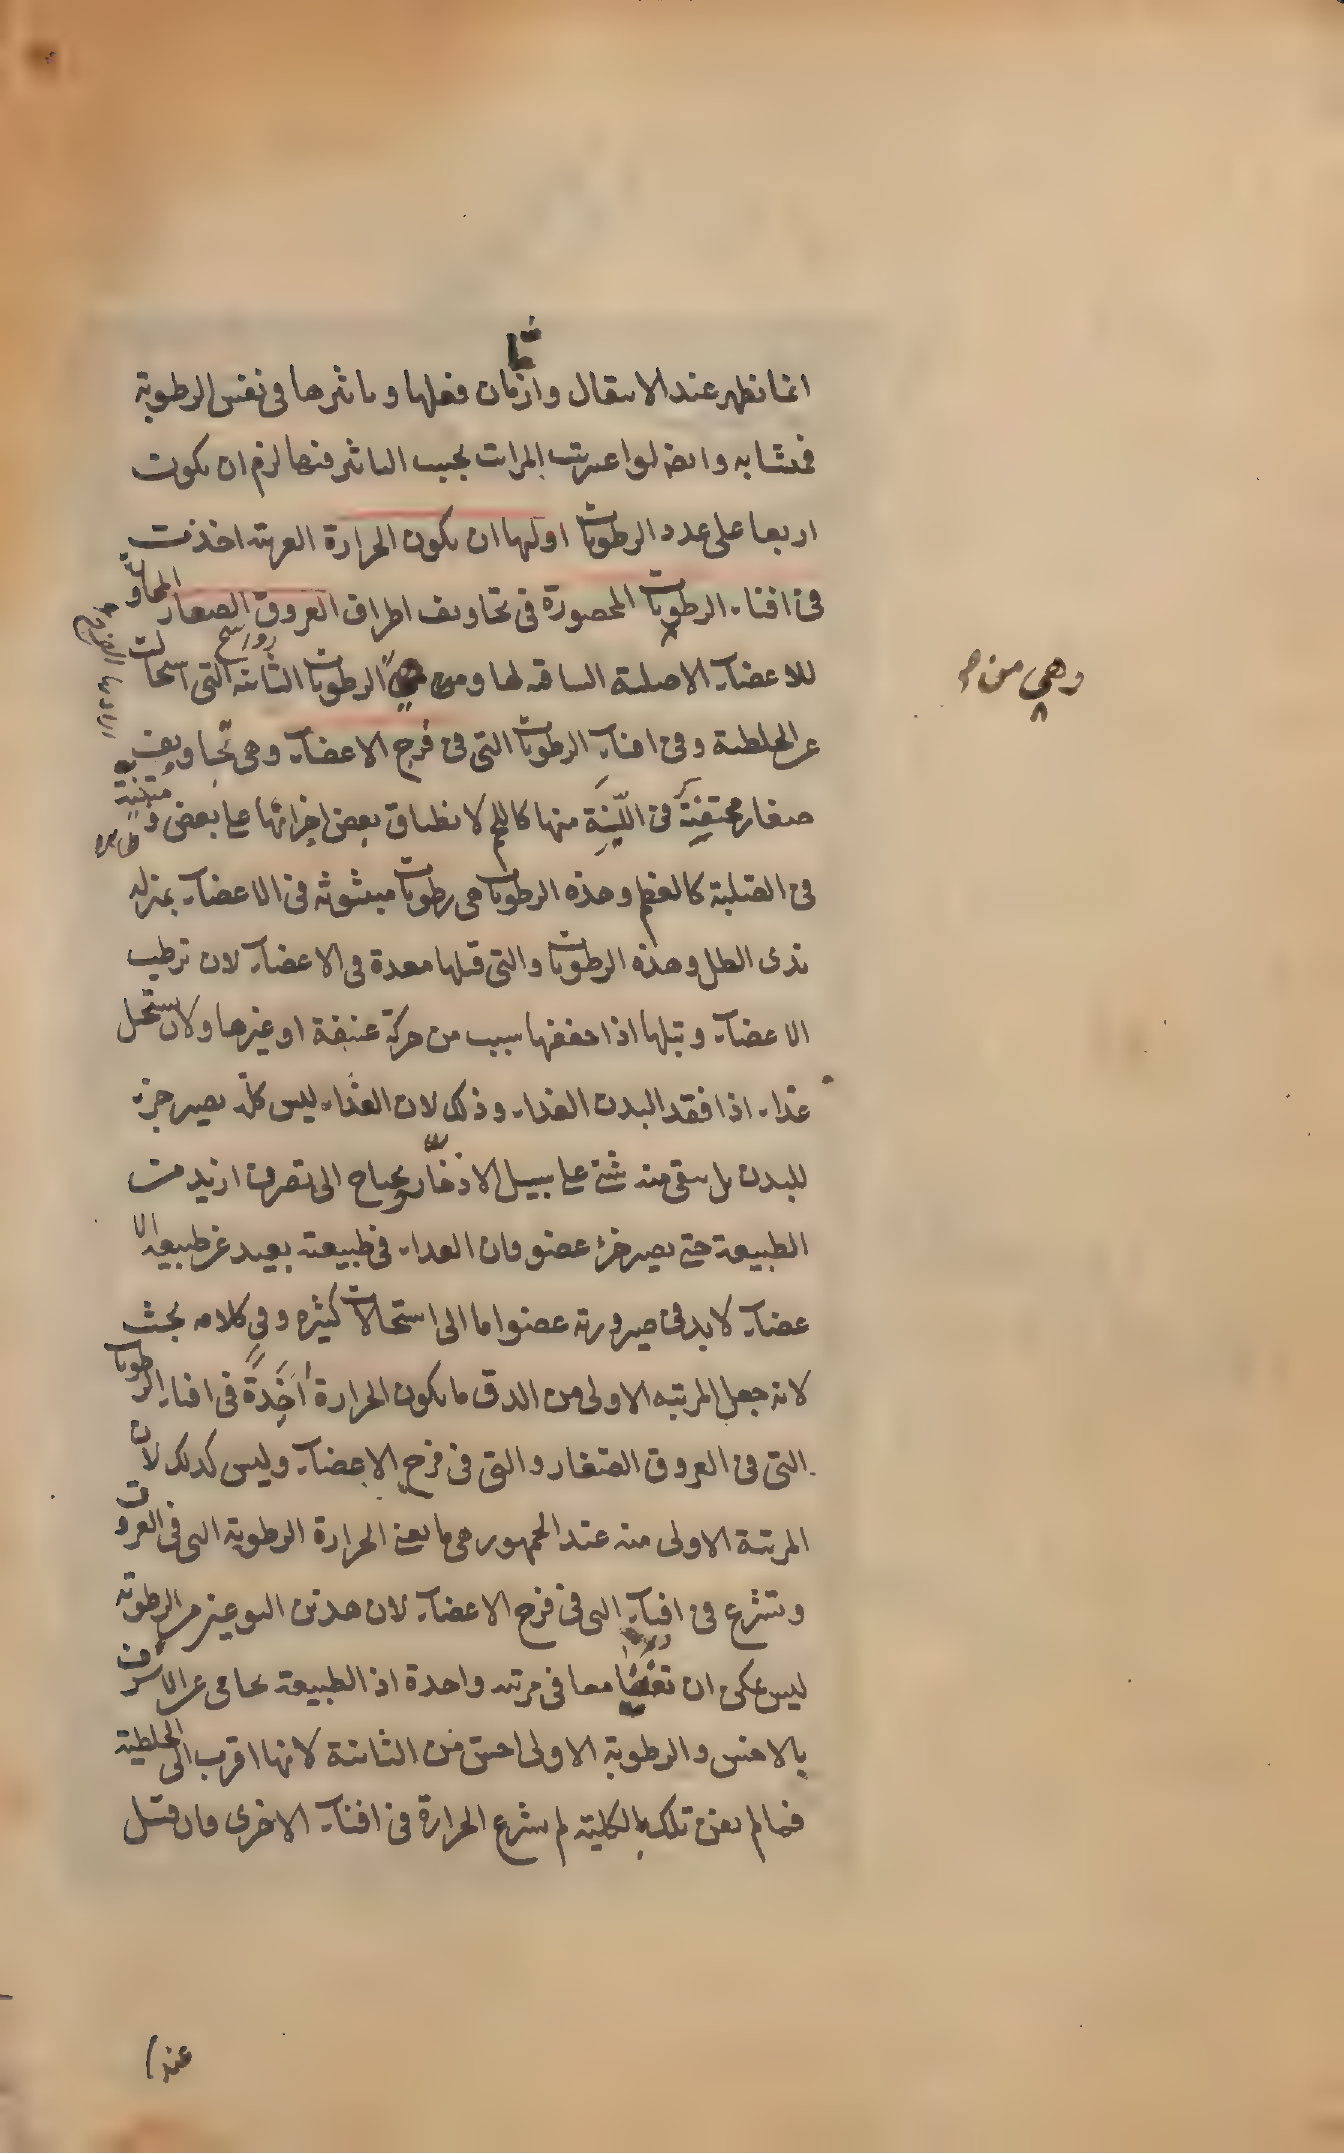 انما تظهر عند الانتقال واما زمان فعلها وتاثيرها في نفس الرطوبة
فمتشابه وايضا لو اعتبرت المراتب بحسب التاثير فيها لزم ان يكون
اربعا على عدد الرطوبات اولها ان يكون الحرارة الغريبة اخذت
في افناء الرطوبات المحصورة في تجاويف اطراف العروق الصغار المجاورة
للاعضاء الاصلية الساقية لها ومن الرطوبات الثانية التي استحالت
عن الخلطية وفي افناء الرطوبات التي في فرج الاعضاء وهي تجاويف
صغار مختفية في اللينة منها كاللحم لانطباق بعض اجزائها على بعض و
في الصلبة كالعظم وهذه الرطوبات هي رطوبات مبثوثة في الاعضاء بمنزلة
ندى الطل وهذه الرطوبات والتي قبلها معدة في الاعضاء لان ترطب
الاعضاء وتبلها اذا جففها سبب من حركة عنيفة او غيرها ولان يستحيل
غذاء اذا فقد البدن الغذاء وذلك لان الغذاء ليس كله يصير جزء
للبدن بل يبقى منه شئ على سبيل الادخار ويحتاج الى تصرف ازيد من
الطبيعة حتى يصير جزء عضو فان الغذاء في طبيعته بعيد عن طبيعة الا
عضاء لابد في صيرورته عضوا ما الى استحالات كثيرة وفي كلامه بحث
لانه جعل المرتبة الاولى من الدق ما يكون الحرارة آخذة في افناء الرطوبات
التي في العروق الصغار والتي في فرج الاعضاء وليس كذلك لان
المرتبة الاولى منه عند الجمهور هي ما يفنى الحرارة الرطوبة التي في العروق
وتشرع في افناء التي في فرج الاعضاء لان هذين النوعين من الرطوبة
ليس يمكن ان تفنيا معا في مرتبة واحدة اذ الطبيعة تحامي عن الاشرف
بالاخس والرطوبة الاولى اخس من الثانية لانها اقرب الى الخلطية
فما لم يفن تلك بالكلية لم يشرع الحرارة في افناء الاخرى فان قيل
وهي من
عند